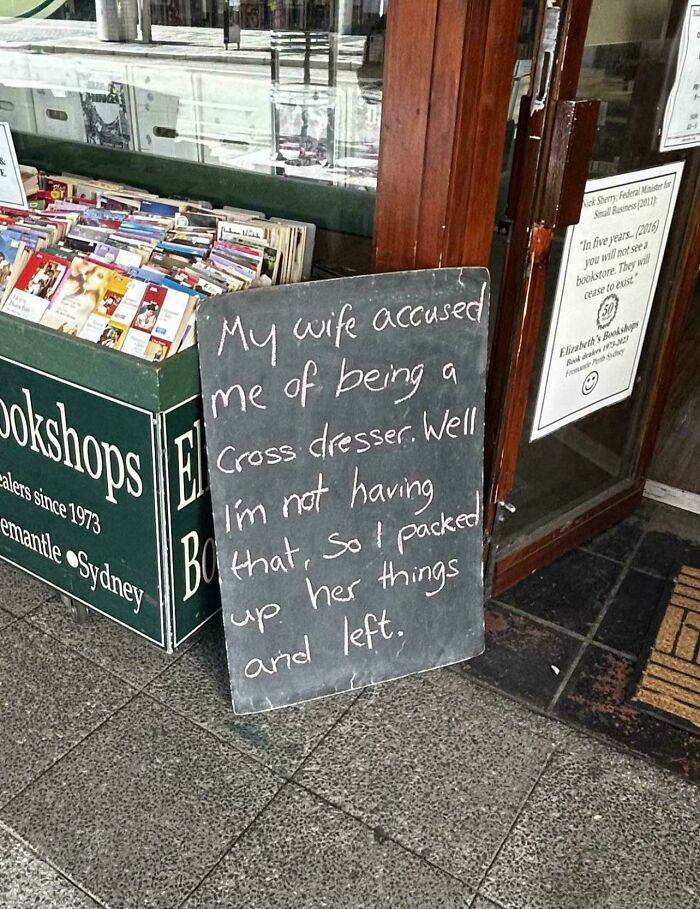 My wife accused
me of being a
cross dresser. Well
I'm not having
that, so I packed
up her things
and left.
ookshops
ealers since 1973
emantle • Sydney
El
Bo
&
E
ick Sherry, Federal Minister for
Small Business (2011):
"In five years... (2016)
you will not see a
bookstore. They will
cease to exist."
50
Elizabeth's Bookshops
Book dealers 1973-2023
Fremantle Perth Sydney